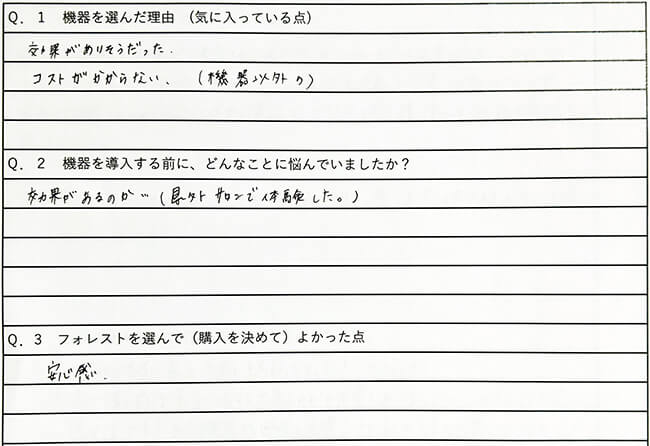 Q. 1 機器を選んだ理由 (気に入っている点)
効果がありそうだった.
コストがかからない、 (機器以外の)
Q. 2 機器を導入する前に、どんなことに悩んでいましたか?
効果があるのか… (県外サロンで体験した。)
Q. 3 フォレストを選んで (購入を決めて) よかった点
安心感.